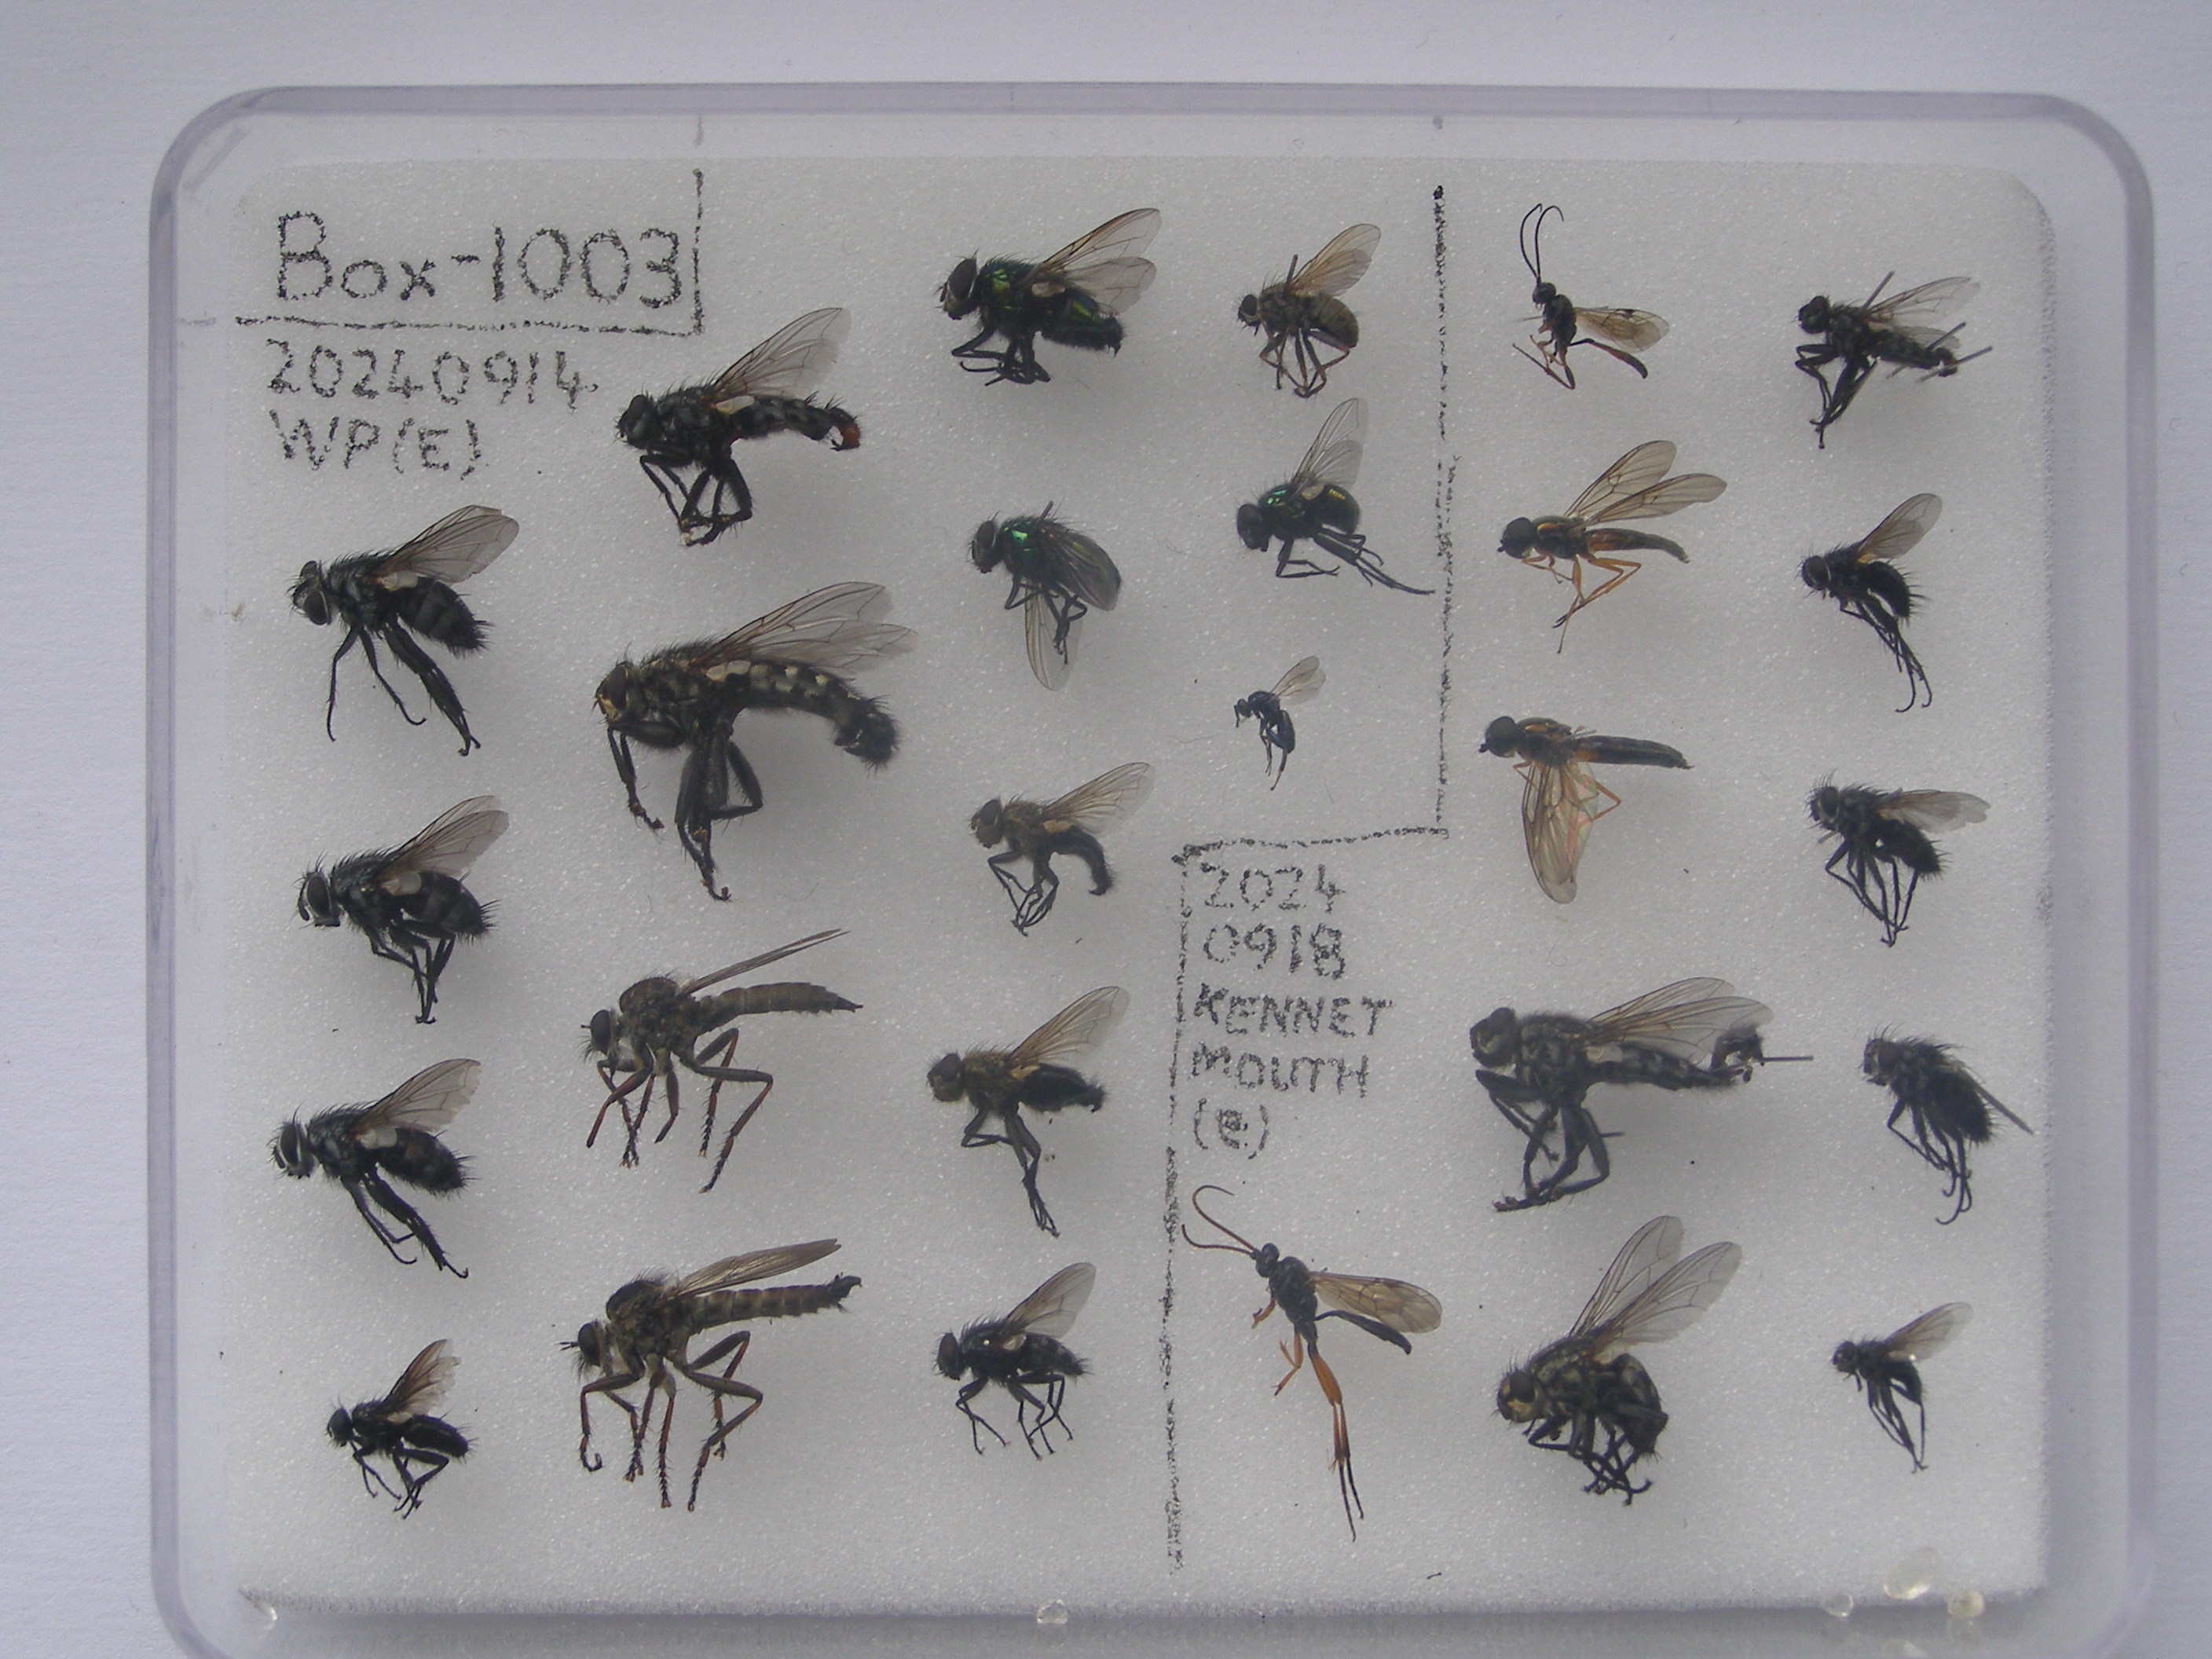 Box-1003
20240914
WP(E)
2024
0918
KENNET
MOUTH